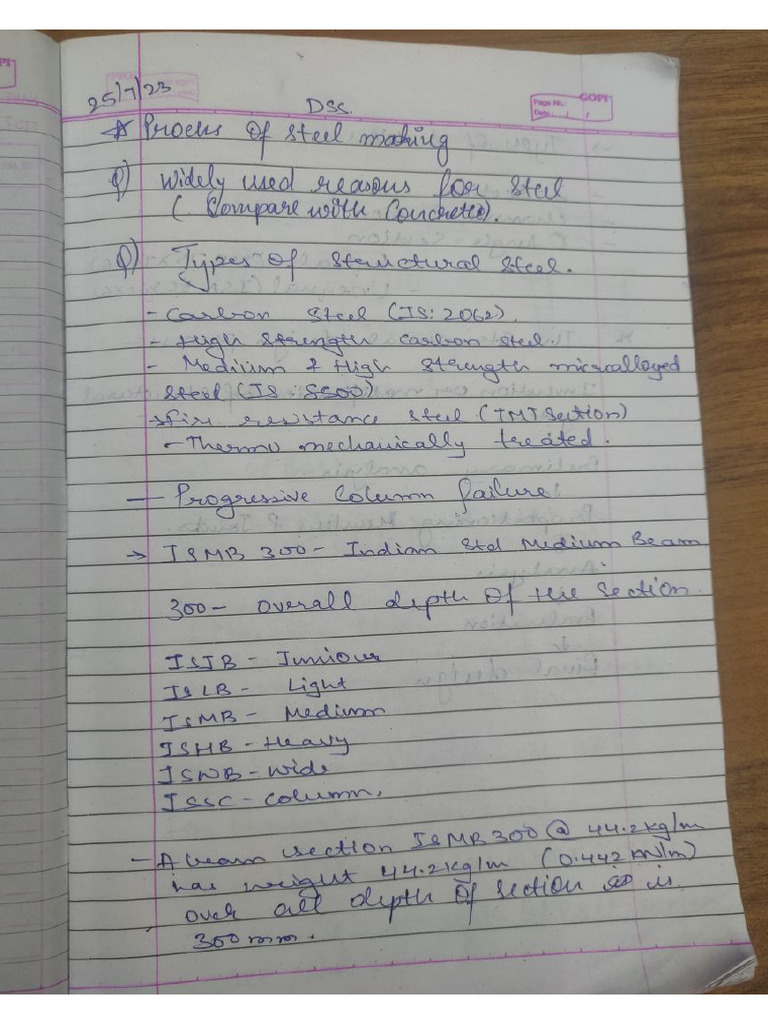 25/7/23
DSS.
GOPI
Page No.:
Date:
* Process of Steel making
Q) Widely used reasons for Steel
( Compare with Concrete).
Q) Types of Structural Steel.
- Carbon Steel (IS: 2062).
- High Strength Carbon Steel.
- Medium & High Strength microalloyed
Steel (IS : 8500)
→ Fire resistance Steel (TMT Section)
- Thermo mechanically treated.
- Progressive Column failure
→ ISMB 300 - Indian Std Medium Beam
300 - overall depth of the section.
ISJB - Juniour
ISLB - Light
ISMB - Medium
ISHB - Heavy
ISWB - Wide
ISSC - Column.
- A beam section ISMB 300 @ 44.2 kg/m
has weight 44.2 kg/m (0.442 kN/m)
over all depth of section is
300 mm.